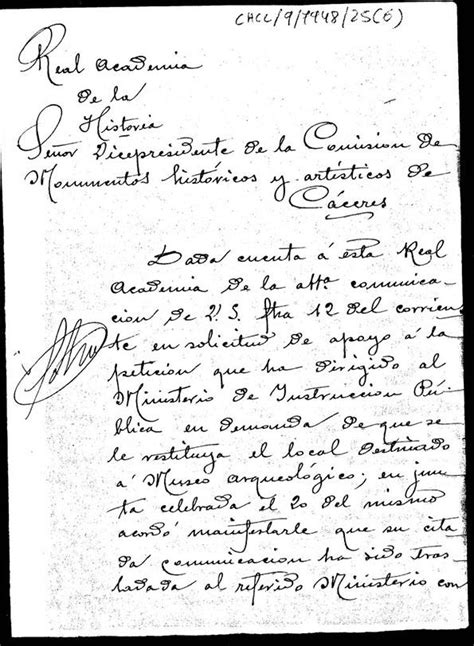 CACC/9/7948/25(6)
Real Academia
de la
Historia
Señor Vicepresidente de la Comision de
Monumentos históricos y artísticos de
Cáceres
Dada cuenta á esta Real
Academia de la attª comunica-
cion de V. S. fha 12 del corrien-
te en solicitud de apoyo á la
peticion que ha dirigido al
Ministerio de Instruccion Pú-
blica en demanda de que se
le restituya el local destinado
á Museo arqueológico; en jun-
ta celebrada el 20 del mismo
acordó manifestarle que su cita
da comunicacion ha sido tras
ladada al referido Ministerio con